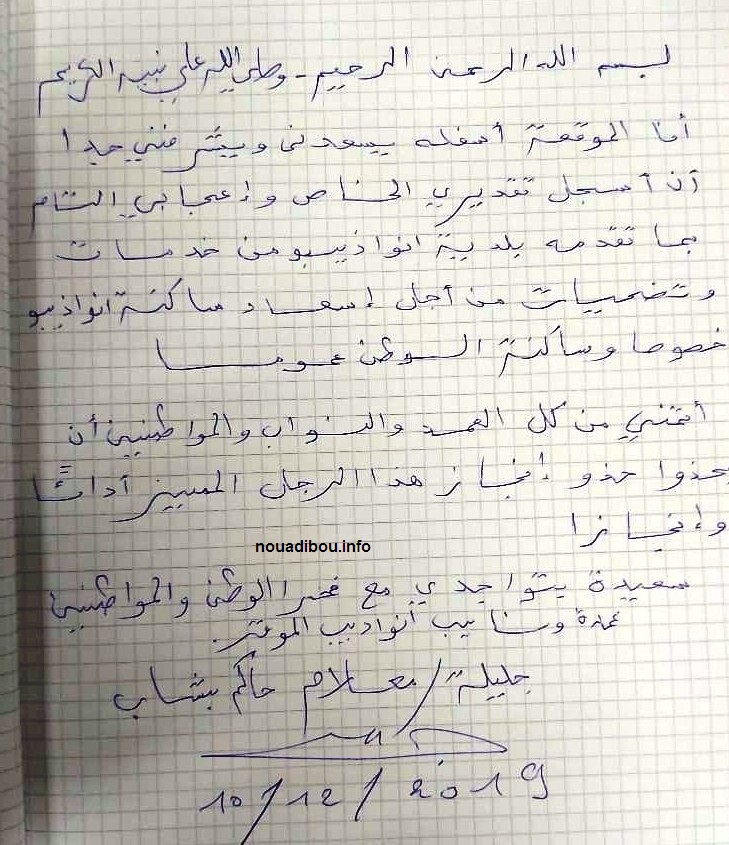 بسم الله الرحمن الرحيم - وصلى الله على نبيه الكريم
أنا الموقعة أسفله يسعدني ويشرفني جدا
أن أسجل تقديري الخاص وإعجابي التام
بما تقدمه بلدية انواذيبو من خدمات
وتضحيات من أجل إسعاد ساكنة انواذيبو
خصوصا وساكنة الوطن عموما
أتمنى من كل العمد والنواب والمواطنين أن
يحذوا حذو إنجاز هذا الرجل المميز أداءً
وإنجازا
nouadibou.info
سعيدة بتواجدي مع فخر الوطن والمواطنين
عمدة ونايب أنواديب الموقر.
جليلة / معلام حاكم بنشاب
10/12/2019